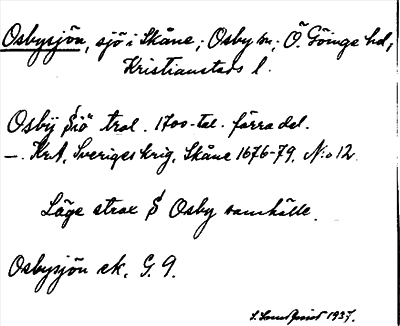 Osbysjön, sjö i Skåne; Osby sn; Ö. Göinge hd,
Kristianstads l.
Osbÿ Siö trol. 1700-tal. förra del.
—. KrA, Sveriges krig, Skåne 1676-79, N:o 12
Läge strax S Osby samhälle.
Osbysjön ek. G. 9.
1937.